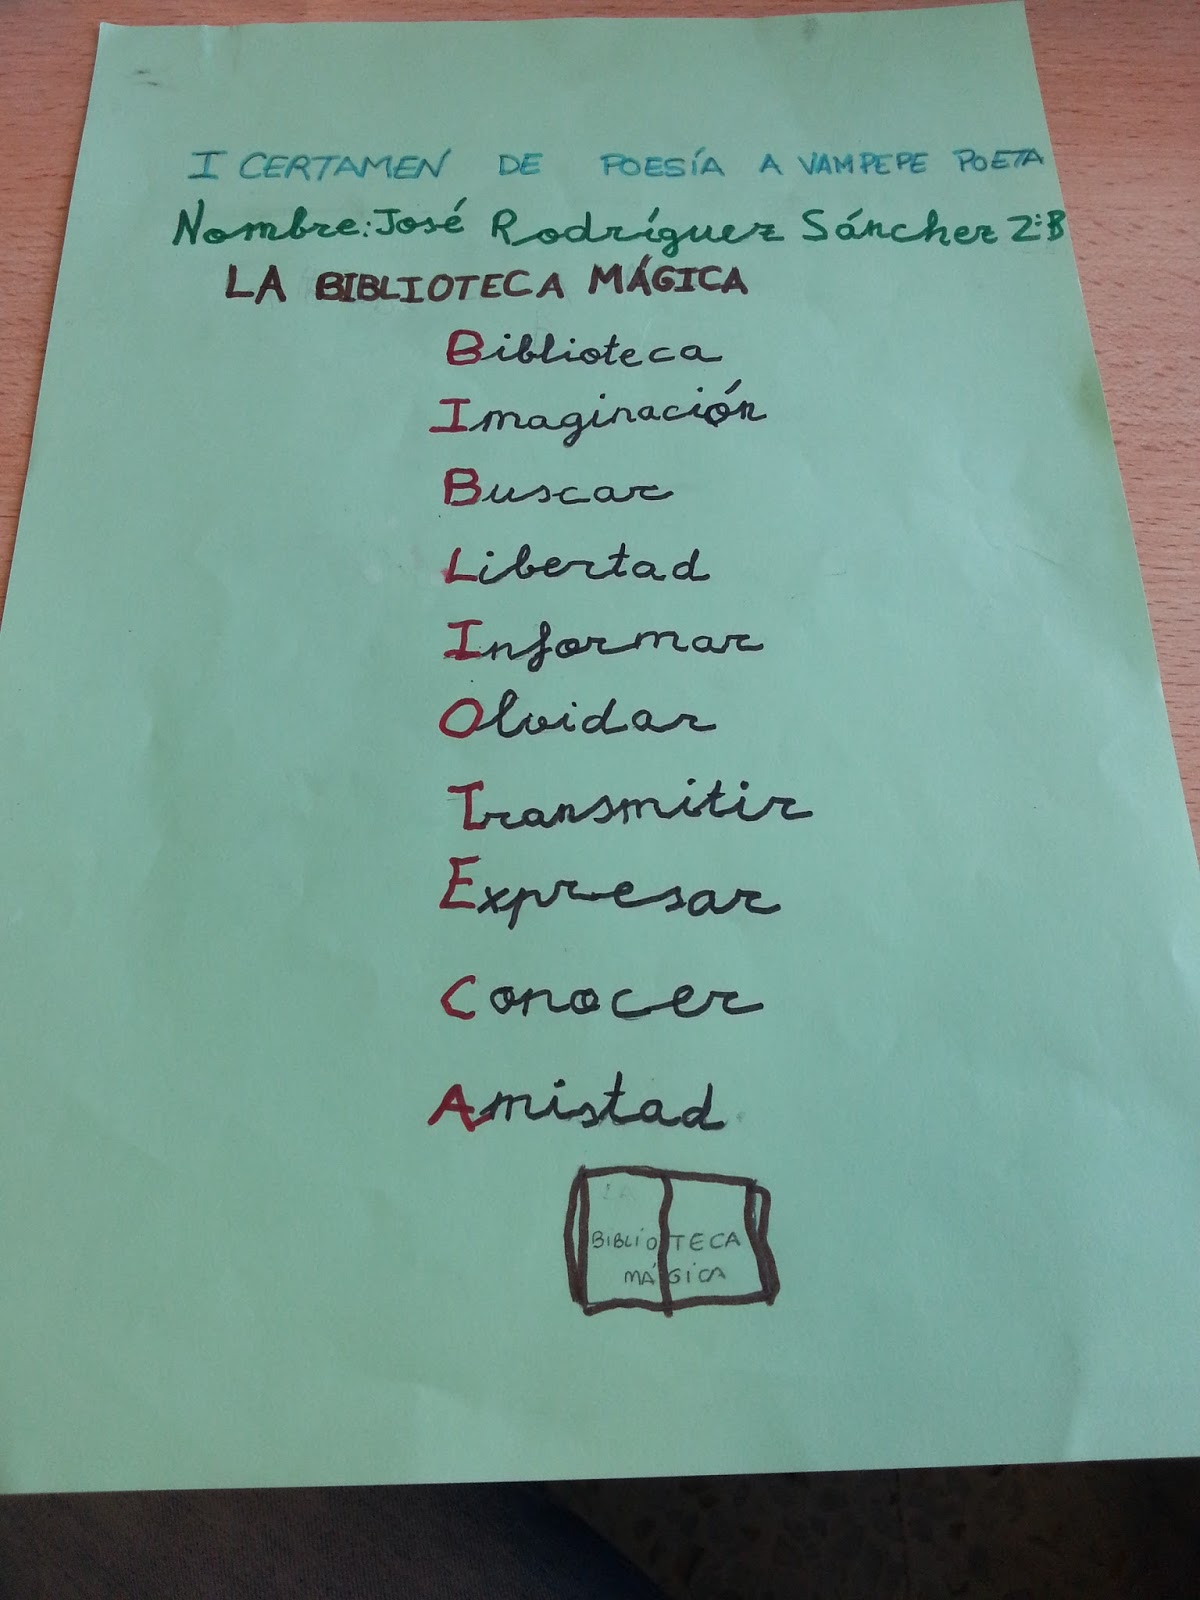 I CERTAMEN DE POESÍA A VAMPEPE POETA
Nombre: José Rodríguez Sánchez 2:B
LA BIBLIOTECA MÁGICA
Biblioteca
Imaginación
Buscar
Libertad
Informar
Olvidar
Transmitir
Expresar
Conocer
Amistad
LA
BIBLIOTECA
MÁGICA